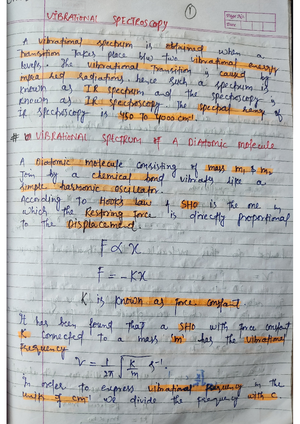 VIBRATIONAL SPECTROSCOPY
1
Page No.
Date
A vibrational spectrum is obtained when a
transition takes place b/w two vibrational energy
levels. The vibrational transition is caused by
infra red radiations hence such a spectrum is
known as IR spectrum and the spectroscopy is
known as IR spectroscopy. The spectral range of
IR spectroscopy is to 4000 cm⁻¹.
# VIBRATIONAL SPECTRUM OF A DIATOMIC MOLECULE
A Diatomic molecule consisting of mass m₁ & m₂
Join by a chemical bond vibrates like a
simple harmonic oscillator.
According to Hooks law of SHO is the one in
which the Restoring force is directly proportional
to the Displacement.
F ∝ x
F = -Kx
K is known as force constant
It has been found that a SHO with force constant
K connected to a mass 'm' has the vibrational
frequency
V = 1/2π √K/m s⁻¹.
In order to express vibrational frequency in the
of cm⁻¹ we divide the frequency with c.